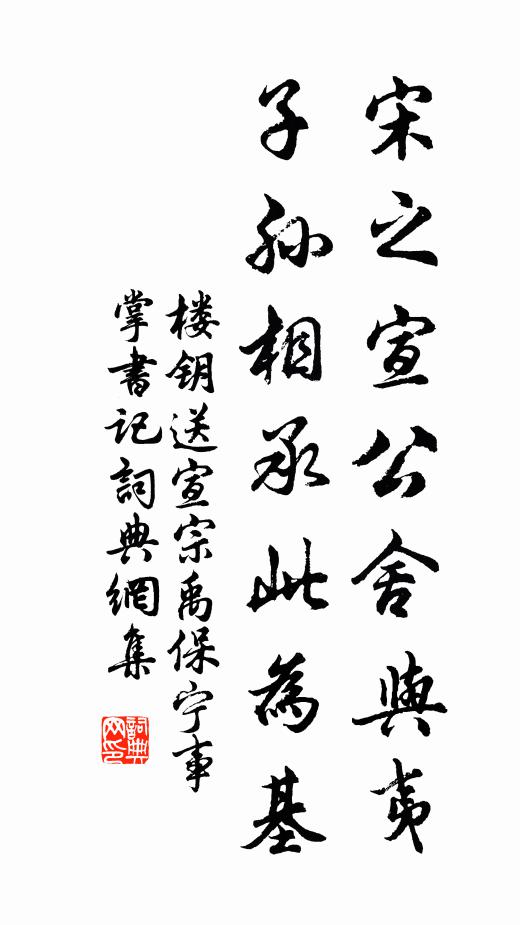 宋之宣公舍與夷
子孙相承此為基
楼钥送宣宗禹保宁事
掌書记詞典網集
詞典网印